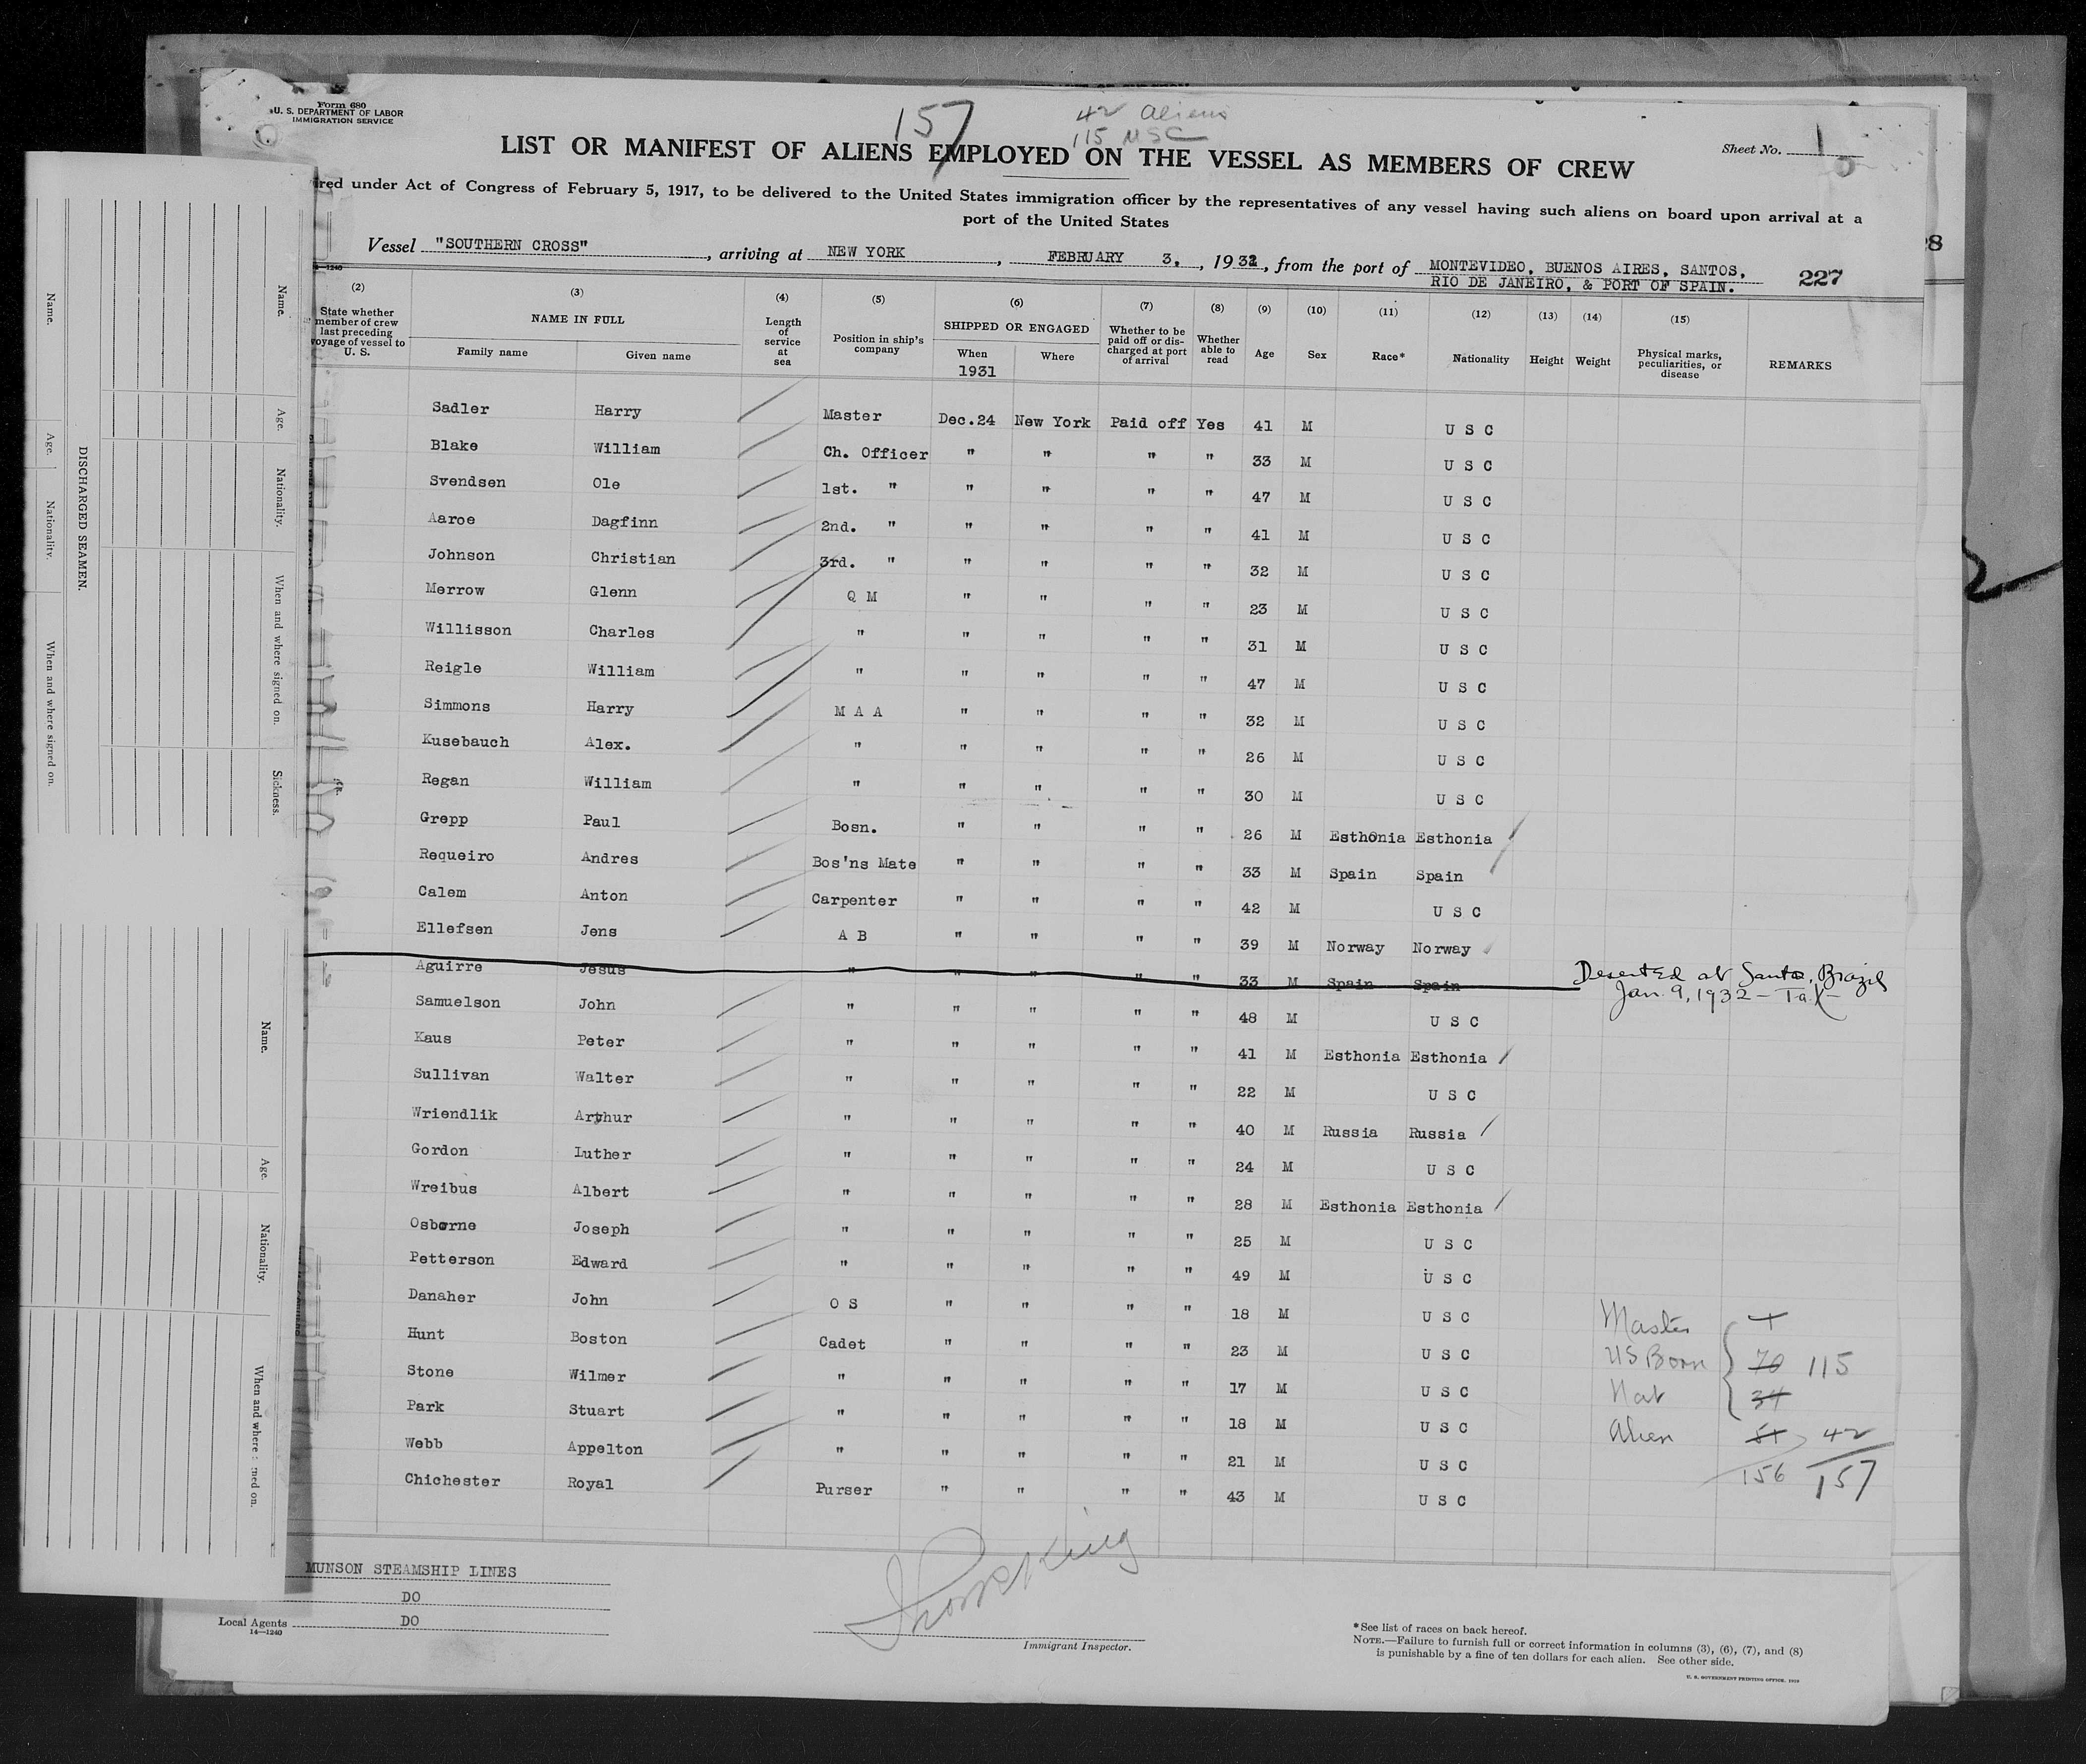 Form 680
U. S. DEPARTMENT OF LABOR
IMMIGRATION SERVICE
157
42 aliens
115 USC
Sheet No. 1
LIST OR MANIFEST OF ALIENS EMPLOYED ON THE VESSEL AS MEMBERS OF CREW
red under Act of Congress of February 5, 1917, to be delivered to the United States immigration officer by the representatives of any vessel having such aliens on board upon arrival at a
port of the United States
Vessel "SOUTHERN CROSS", arriving at NEW YORK, FEBRUARY 3, 1932, from the port of MONTEVIDEO, BUENOS AIRES, SANTOS,
RIO DE JANEIRO, & PORT OF SPAIN.
227
(2) (3) (4) (5) (6) (7) (8) (9) (10) (11) (12) (13) (14) (15)
State whether member of crew last preceding voyage of vessel to U. S.
NAME IN FULL
Family name Given name
Length of service at sea
Position in ship's company
SHIPPED OR ENGAGED
When Where
1931
Whether to be paid off or discharged at port of arrival
Whether able to read
Age Sex Race* Nationality Height Weight
Physical marks, peculiarities, or disease
REMARKS
Sadler Harry Master Dec.24 New York Paid off Yes 41 M U S C
Blake William Ch. Officer " " " " 33 M U S C
Svendsen Ole 1st. " " " " " 47 M U S C
Aaroe Dagfinn 2nd. " " " " " 41 M U S C
Johnson Christian 3rd. " " " " " 32 M U S C
Merrow Glenn Q M " " " " 23 M U S C
Willisson Charles " " " " " 31 M U S C
Reigle William " " " " " 47 M U S C
Simmons Harry M A A " " " " 32 M U S C
Kusebauch Alex. " " " " " 26 M U S C
Regan William " " " " " 30 M U S C
Grepp Paul Bosn. " " " " 26 M Esthonia Esthonia
Requeiro Andres Bos'ns Mate " " " " 33 M Spain Spain
Calem Anton Carpenter " " " " 42 M U S C
Ellefsen Jens A B " " " " 39 M Norway Norway
Aguirre Jesus " " " " " 33 M Spain Spain Deserted at Santos, Brazil
Jan. 9, 1932
Samuelson John " " " " " 48 M U S C
Kaus Peter " " " " " 41 M Esthonia Esthonia
Sullivan Walter " " " " " 22 M U S C
Wriendlik Arthur " " " " " 40 M Russia Russia
Gordon Luther " " " " " 24 M U S C
Wreibus Albert " " " " " 28 M Esthonia Esthonia
Osborne Joseph " " " " " 25 M U S C
Petterson Edward " " " " " 49 M U S C
Danaher John O S " " " " 18 M U S C
Hunt Boston Cadet " " " " 23 M U S C
Stone Wilmer " " " " " 17 M U S C
Park Stuart " " " " " 18 M U S C
Webb Appelton " " " " " 21 M U S C
Chichester Royal Purser " " " " 43 M U S C
Master 1
US Born 70 115
Nat 34
Alien 51 42
156 157
MUNSON STEAMSHIP LINES
DO
Local Agents DO
14—1240
Immigrant Inspector.
*See list of races on back hereof.
NOTE.—Failure to furnish full or correct information in columns (3), (6), (7), and (8)
is punishable by a fine of ten dollars for each alien. See other side.
U. S. GOVERNMENT PRINTING OFFICE
DISCHARGED SEAMEN.
Name. Age. Nationality. When and where signed on. Sickness.
Name. Age. Nationality. When and where signed on.
Name. Age. Nationality. When and where ned on.